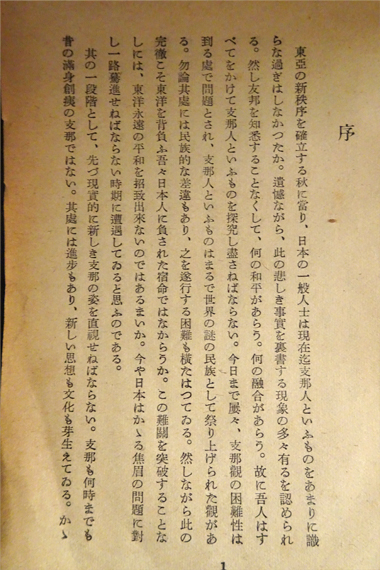 序
東亞の新秩序を確立する秋に當り、日本の一般人士は現在迄支那人といふものをあまりに識
らな過ぎはしなかつたか。遺憾ながら、此の悲しき事實を裏書する現象の多々有るを認められ
る。然し友邦を知悉することなくして、何の和平があらう。何の融合があらう。故に吾人はす
べてをかけて支那人といふものを探究し盡さねばならない。今日まで屢々、支那觀の困難性は
到る處で問題とされ、支那人といふものはまるで世界の謎の民族として祭り上げられた觀があ
る。勿論其處には民族的な差違もあり、之を遂行する困難も橫たはつてゐる。然しながら此の
完徹こそ東洋を背負ふ吾々日本人に負された宿命ではなからうか。この難關を突破することな
しには、東洋永遠の平和を招致出來ないのではあるまいか。今や日本はかゝる焦眉の問題に對
し一路驀進せねばならない時期に遭遇してゐると思ふのである。
其の一段階として、先づ現實的に新しき支那の姿を直視せねばならない。支那も何時までも
昔の滿身創痍の支那ではない。其處には進步もあり、新しい思想も文化も芽生えてゐる。かゝ
1